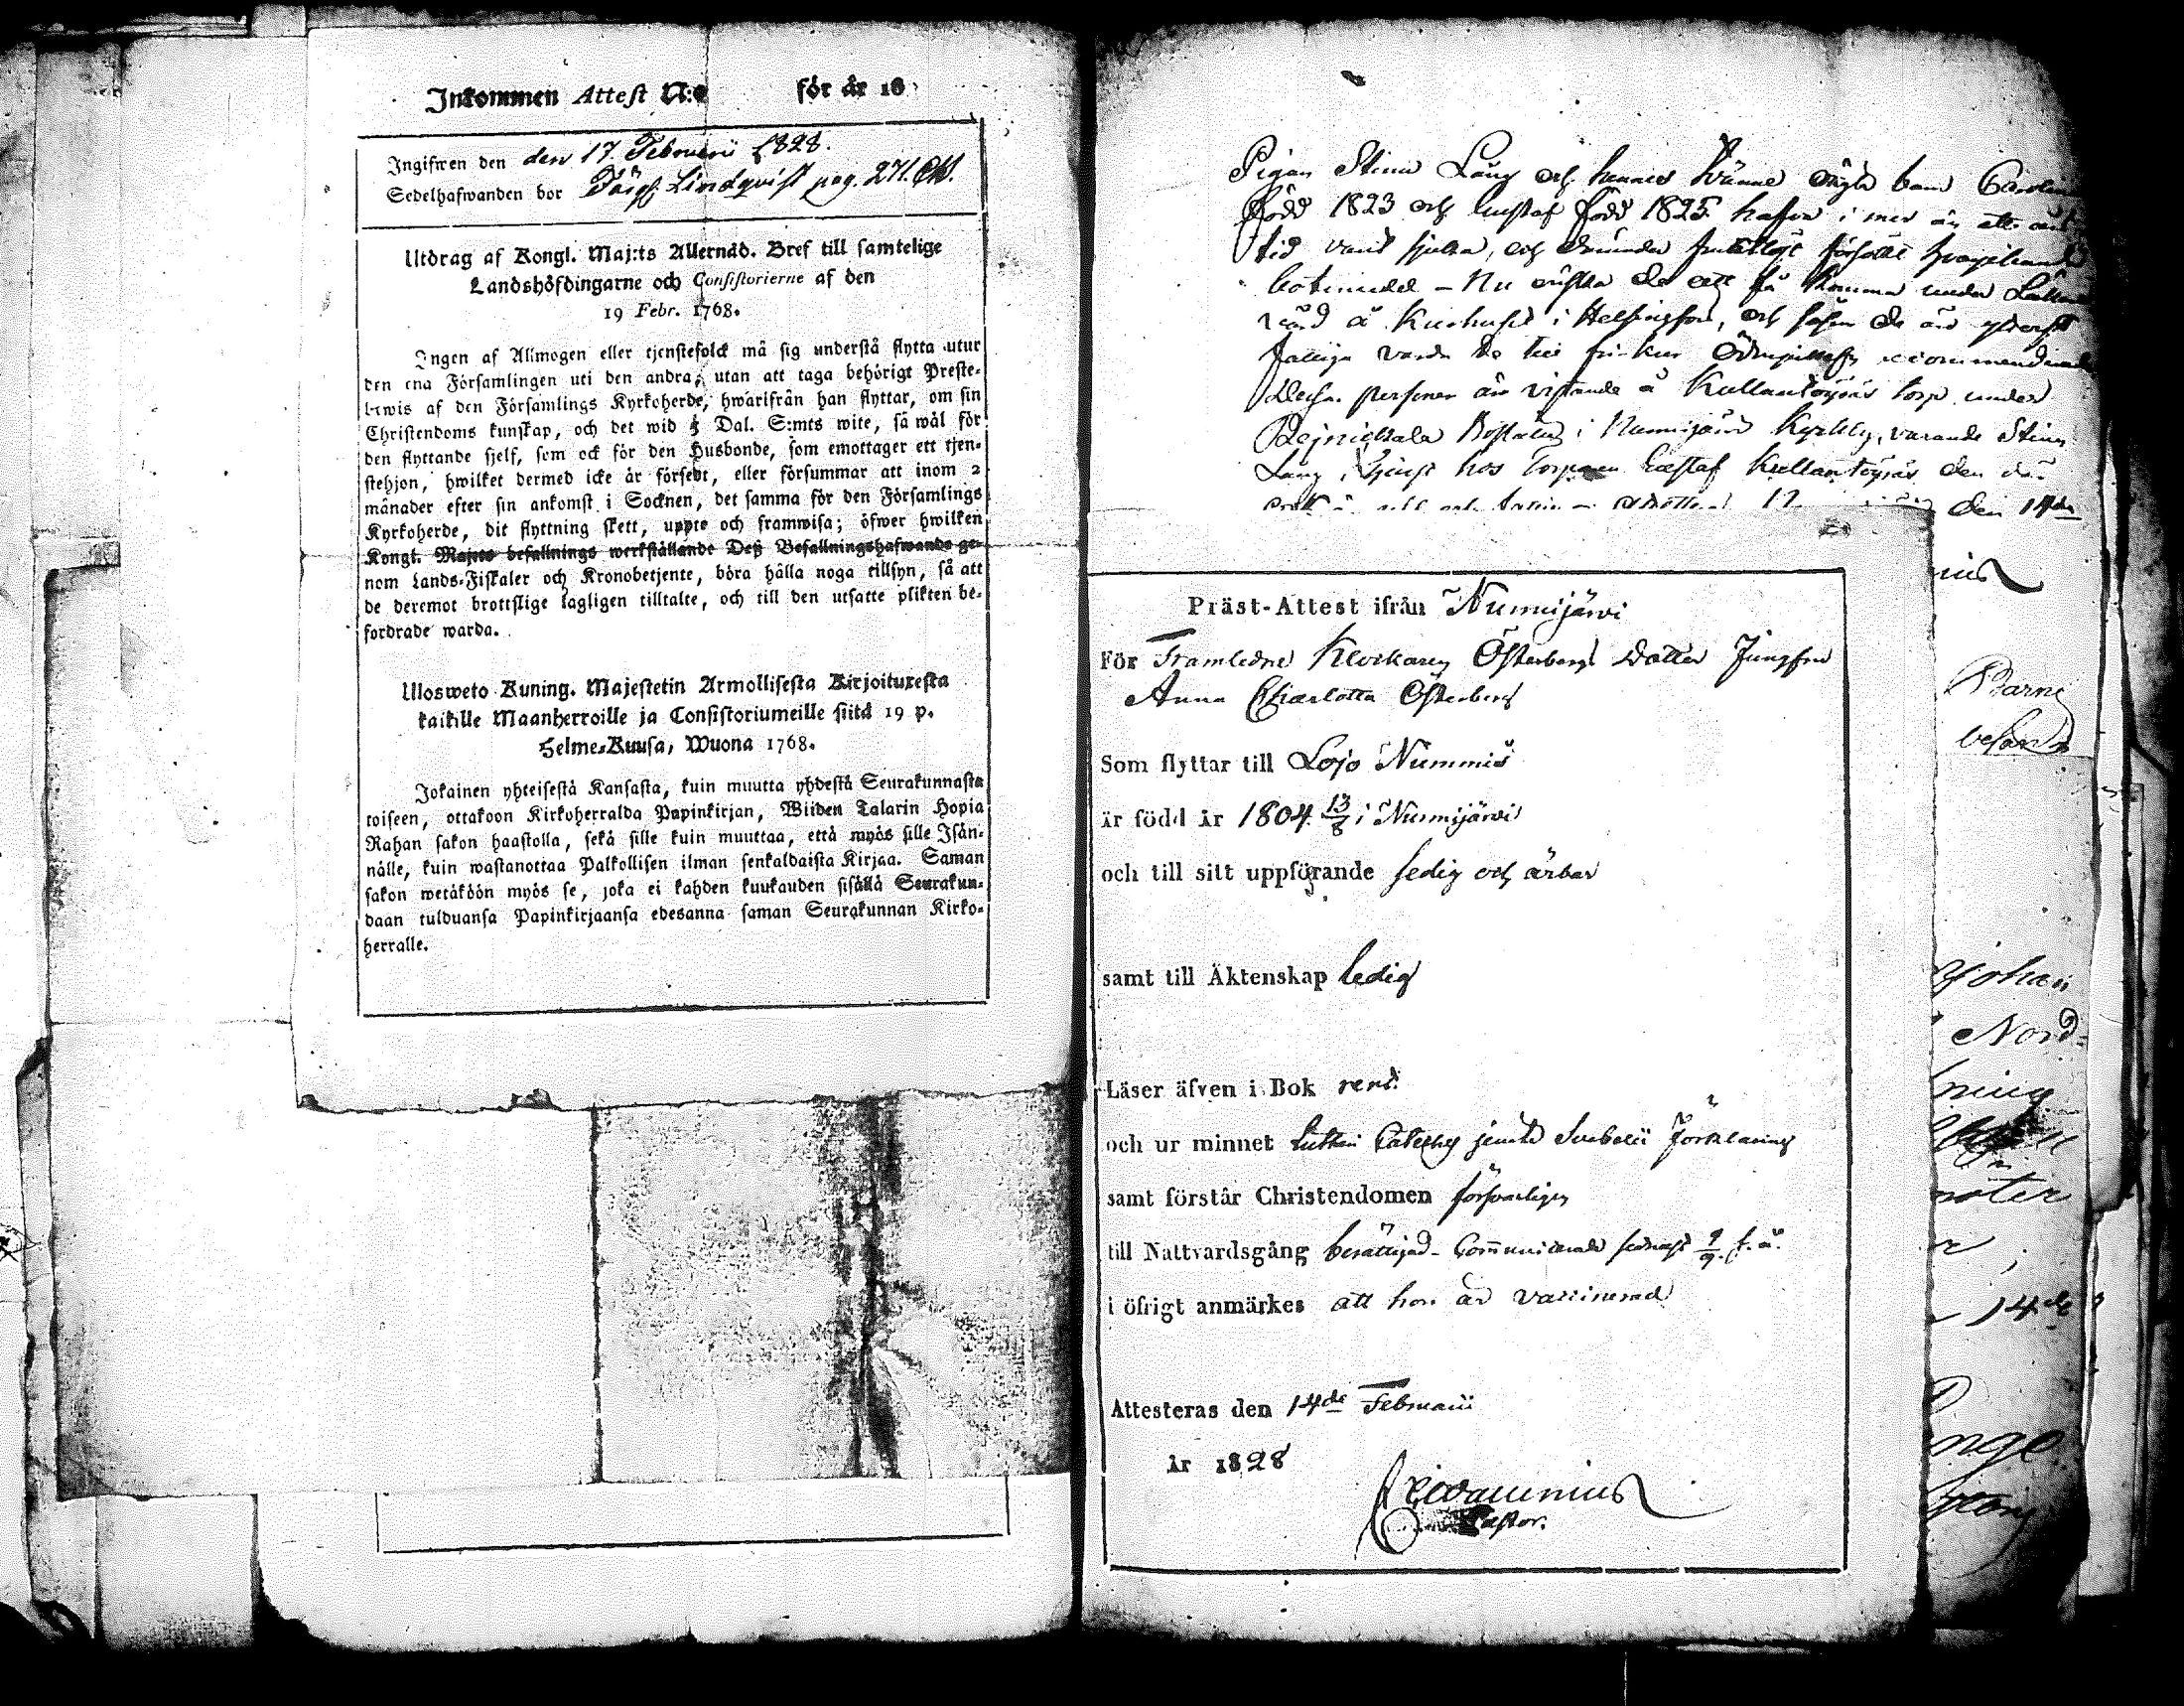 Inkommen Attest N:o för år 18
Ingifwen den den 17. Februarii 1828.
Sedelhafwanden bor Lindqvist pag. 271.
Utdrag af Kongl. Maj:ts Allernåd. Bref till samtelige
Landshöfdingarne och Consistorierne af den
19 Febr. 1768.
Ingen af Allmogen eller tjenstefolck må sig understå flytta utur
den ena Församlingen uti den andra, utan att taga behörigt Preste-
bewis af den Församlings Kyrkoherde, hwarifrån han flyttar, om sin
Christendoms kunskap, och det wid 5 Dal. S:mts wite, så wäl för
den flyttande sjelf, som ock för den Husbonde, som emottager ett tjen-
stehjon, hwilket dermed icke är försedt, eller försummar att inom 2
månader efter sin ankomst i Socknen, det samma för den Församlings
Kyrkoherde, dit flyttning skett, uppte och framwisa; öfwer hwilken
Kongl. Maj:ts befallnings werkställande Deß Befallningshafwande ge-
nom Lands-Fiskaler och Kronobetjente, böra hålla noga tillsyn, så att
de deremot brottslige lagligen tilltalte, och till den utsatte plikten be-
fordrade warda.
Ulosweto Kuning. Majestetin Armollisesta Kirjoituxesta
kaikille Maanherroille ja Consistoriumeille siitä 19 p.
Helme-Kuusa, Wuona 1768.
Jokainen yhteisestä Kansasta, kuin muutta yhdestä Seurakunnasta
toiseen, ottakoon Kirkoherralda Papinkirjan, Wiiden Talarin Hopia
Rahan sakon haastolla, sekä sille kuin muuttaa, että myös sille Isän-
nälle, kuin wastanottaa Palkollisen ilman senkaldaista Kirjaa. Saman
sakon wetäköön myös se, joka ei kahden kuukauden sisällä Seurakun-
daan tulduansa Papinkirjaansa edesanna saman Seurakunnan Kirko-
herralle.
Pigan Stina Lång och hennes tvänne oägta barn Carolina
född 1823 och Gustaf född 1825 hafva i mer än ett års
tid varit sjuka, och fruktlöst försökt
botmedel - Nu önska de att få komma under Läkare
vård å Kurhuset i Helsingfors, och såsom de äro ytterst
fattiga varda de till fri-kur ödmjukast recommenderade
Dessa personer äro vistande å Kullantöyräs torp under
i Nurmijärvi Kyrkby, varande Stina
Lång i tjenst hos Torparen Gustaf Kullantöyräs den
den 14de
Präst-Attest ifrån Nurmijärvi
För Framledne Klockaren Österbergs dotter Jungfrun
Anna Charlotta Österberg
Som flyttar till Lojo Nummis
är född år 1804 13/8 i Nurmijärvi
och till sitt uppförande sedig och ärbar
samt till Äktenskap ledig
Läser äfven i Bok rent
och ur minnet Luthers Cateches jemte Svebelii förklaring
samt förstår Christendomen försvarligen
till Nattvardsgång berättigad - Communicerade sednast 9/9 f. å.
i öfrigt anmärkes att hon är vaccinerad
Attesteras den 14de Februarii
år 1828
Pastor.
Barne
Johan
Nord-
ning
14de